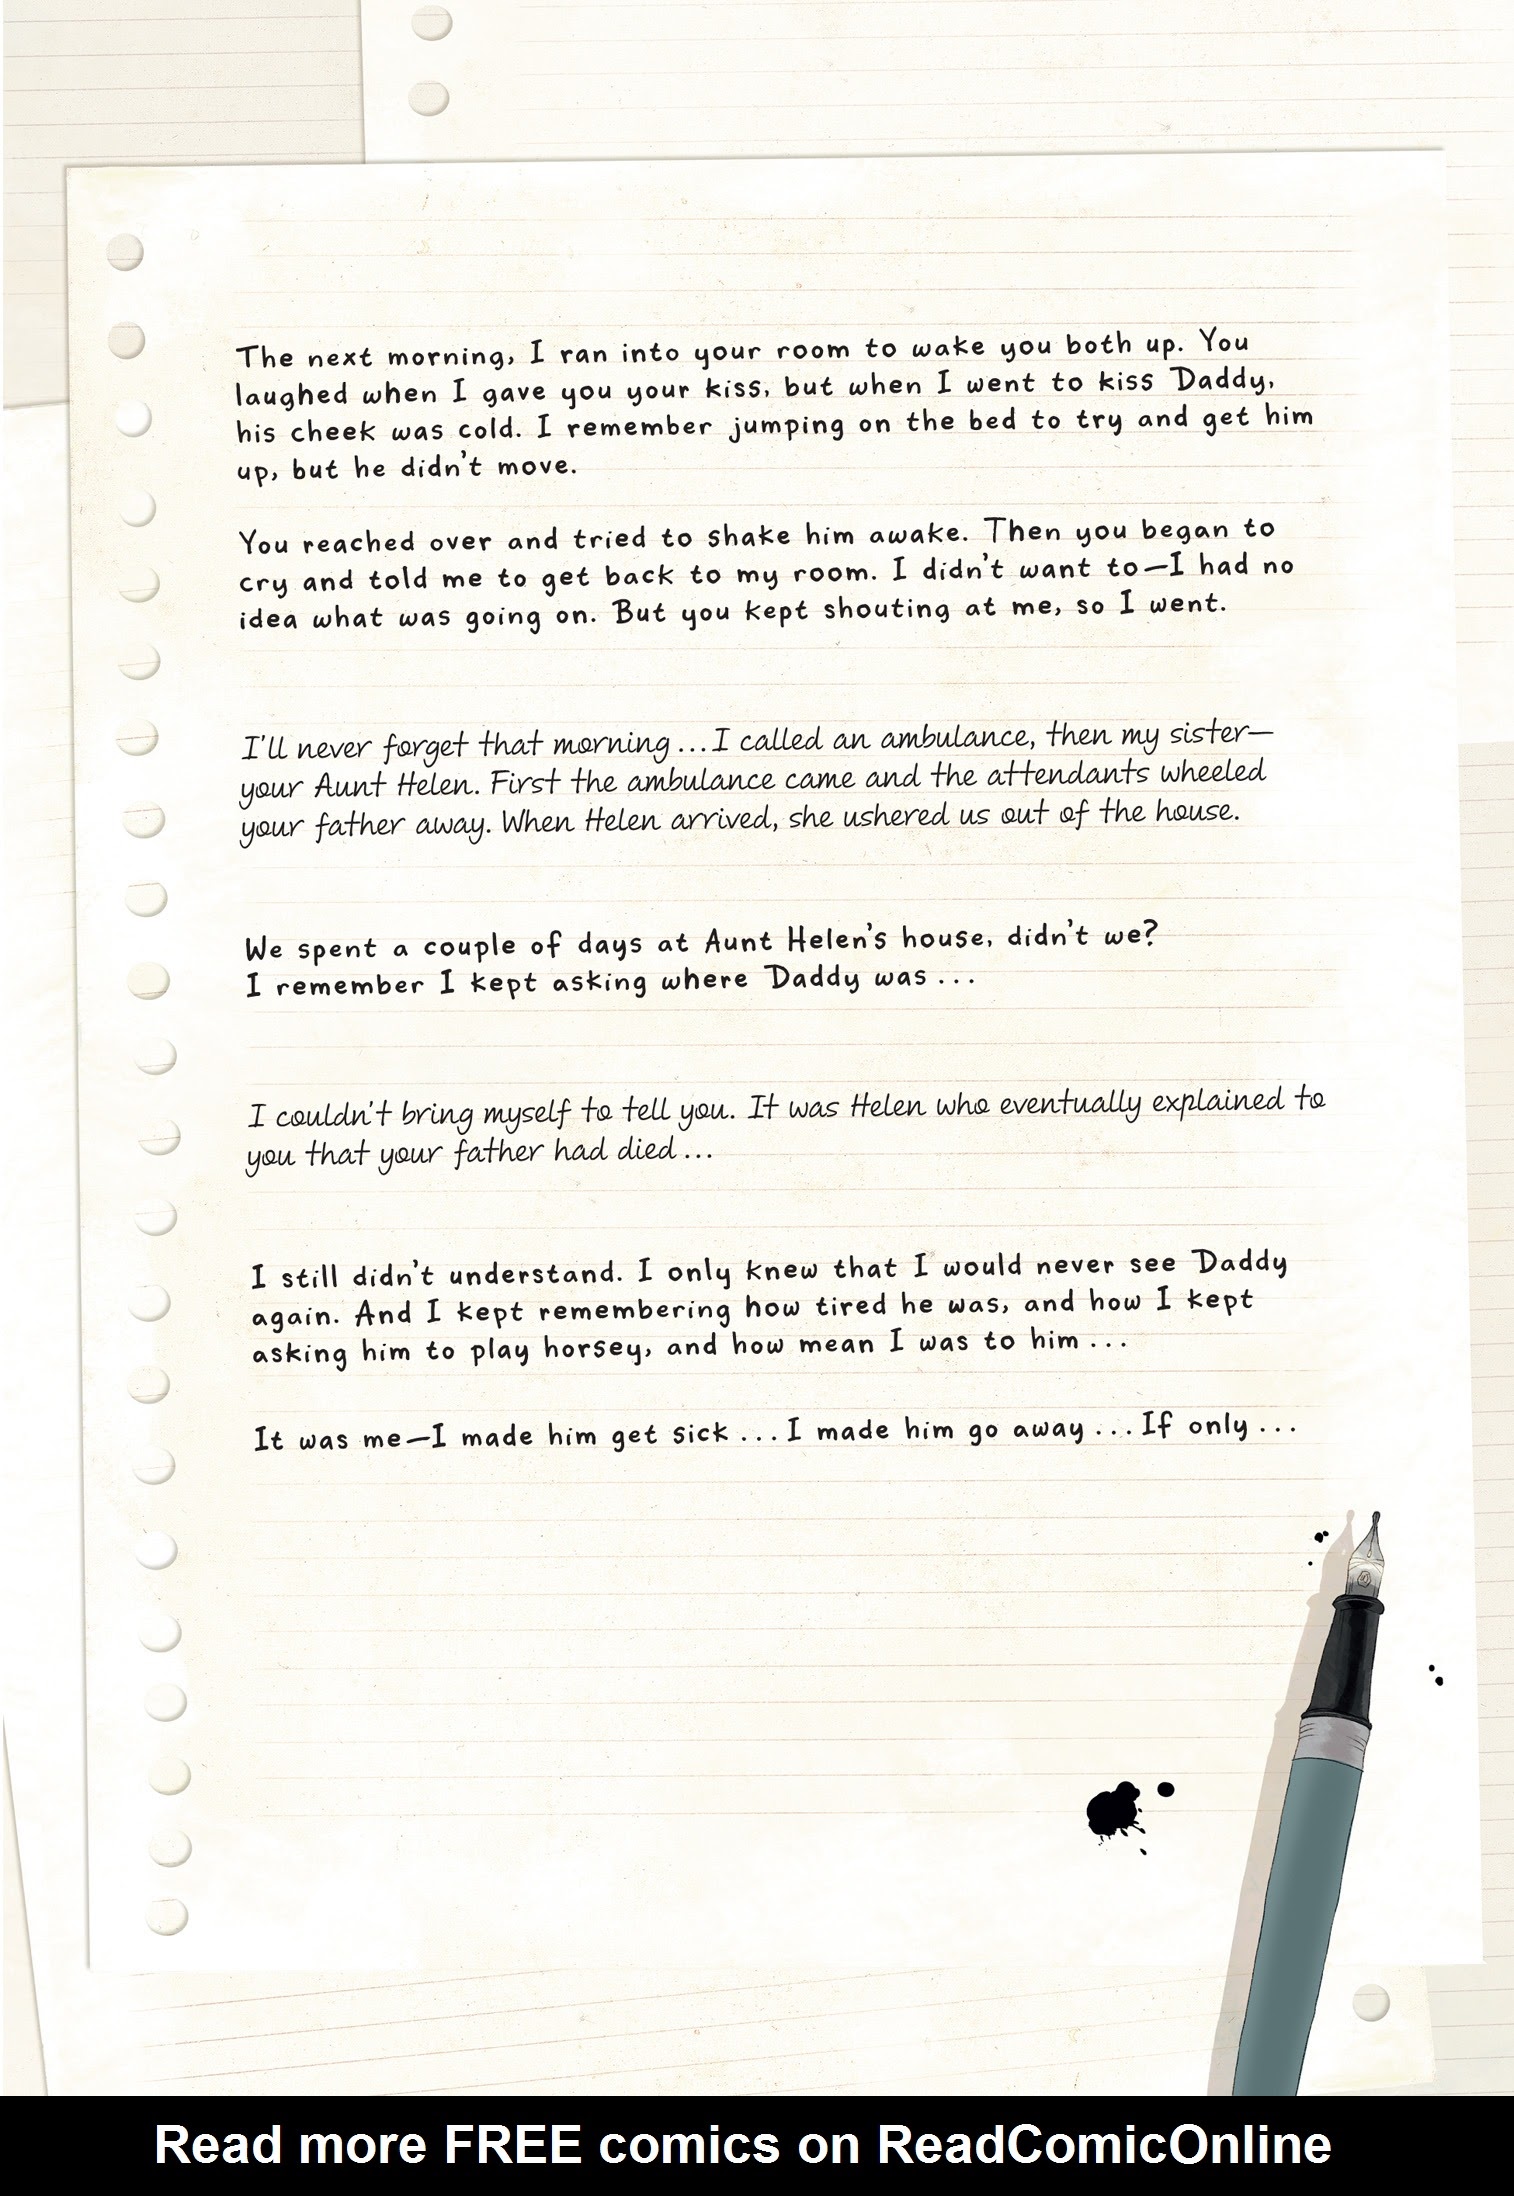 The next morning, I ran into your room to wake you both up. You
laughed when I gave you your kiss, but when I went to kiss Daddy,
his cheek was cold. I remember jumping on the bed to try and get him
up, but he didn't move.
You reached over and tried to shake him awake. Then you began to
cry and told me to get back to my room. I didn't want to—I had no
idea what was going on. But you kept shouting at me, so I went.
I'll never forget that morning...I called an ambulance, then my sister—
your Aunt Helen. First the ambulance came and the attendants wheeled
your father away. When Helen arrived, she ushered us out of the house.
We spent a couple of days at Aunt Helen's house, didn't we?
I remember I kept asking where Daddy was...
I couldn't bring myself to tell you. It was Helen who eventually explained to
you that your father had died...
I still didn't understand. I only knew that I would never see Daddy
again. And I kept remembering how tired he was, and how I kept
asking him to play horsey, and how mean I was to him...
It was me—I made him get sick...I made him go away...If only...
Read more FREE comics on ReadComicOnline